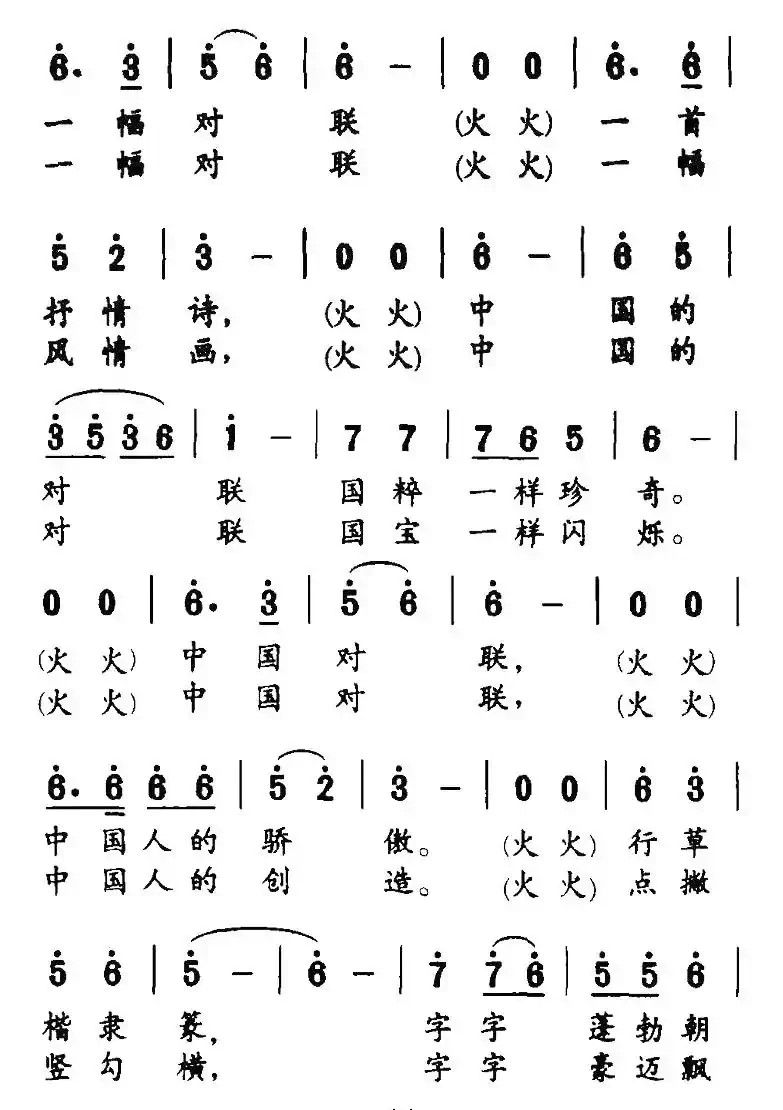 6. 3 | 5 6 | 6 － | 0 0 | 6. 6 |
一 幅 对 联 (火 火) 一 首
一 幅 对 联 (火 火) 一 幅
5 2 | 3 － | 0 0 | 6 － | 6 5 |
抒 情 诗， (火 火) 中 国 的
风 情 画， (火 火) 中 国 的
3 5 3 6 | 1 － | 7 7 | 7 6 5 | 6 － |
对 联 国 粹 一 样 珍 奇。
对 联 国 宝 一 样 闪 烁。
0 0 | 6. 3 | 5 6 | 6 － | 0 0 |
(火 火) 中 国 对 联， (火 火)
(火 火) 中 国 对 联， (火 火)
6. 6 6 6 | 5 2 | 3 － | 0 0 | 6 3 |
中 国 人 的 骄 傲。 (火 火) 行 草
中 国 人 的 创 造。 (火 火) 点 撇
5 6 | 5 － | 6 － | 7 7 6 | 5 5 6 |
楷 隶 篆， 字 字 蓬 勃 朝
竖 勾 横， 字 字 豪 迈 飘